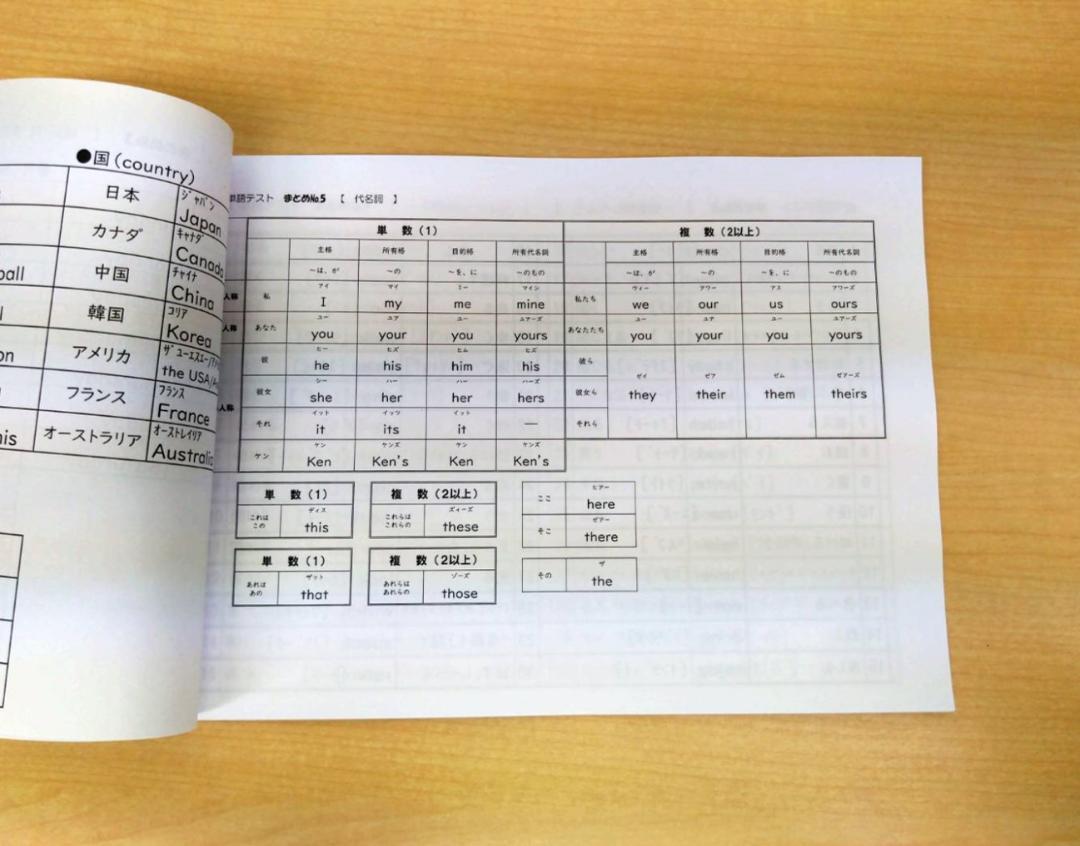 ●国(country)
日本 ジャパン Japan
カナダ キャナダ Canada
中国 チャイナ China
韓国 コリア Korea
アメリカ the USA/
フランス フランス France
オーストラリア オーストレイリア Australia
単語テスト まとめNo.5 【 代名詞 】
単 数 (1) 複 数 (2以上)
主格 所有格 目的格 所有代名詞 主格 所有格 目的格 所有代名詞
～は、が ～の ～を、に ～のもの ～は、が ～の ～を、に ～のもの
アイ マイ ミー マイン ウィー アワー アス アワーズ
人称 私 I my me mine 私たち we our us ours
ユー ユア ユー ユアーズ ユー ユア ユー ユアーズ
人称 あなた you your you yours あなたたち you your you yours
ヒー ヒズ ヒム ヒズ
彼 he his him his 彼ら
シー ハー ハー ハーズ ゼイ ゼア ゼム ゼアーズ
人称 彼女 she her her hers 彼女ら they their them theirs
イット イッツ イット
それ it its it — それら
ケン ケンズ ケン ケンズ
ケン Ken Ken's Ken Ken's
単 数 (1)
これは
この
ディス
this
複 数 (2以上)
これらは
これらの
ズィーズ
these
ここ ヒアー here
そこ ゼアー there
単 数 (1)
あれは
あの
ザット
that
複 数 (2以上)
あれらは
あれらの
ゾーズ
those
その ザ the